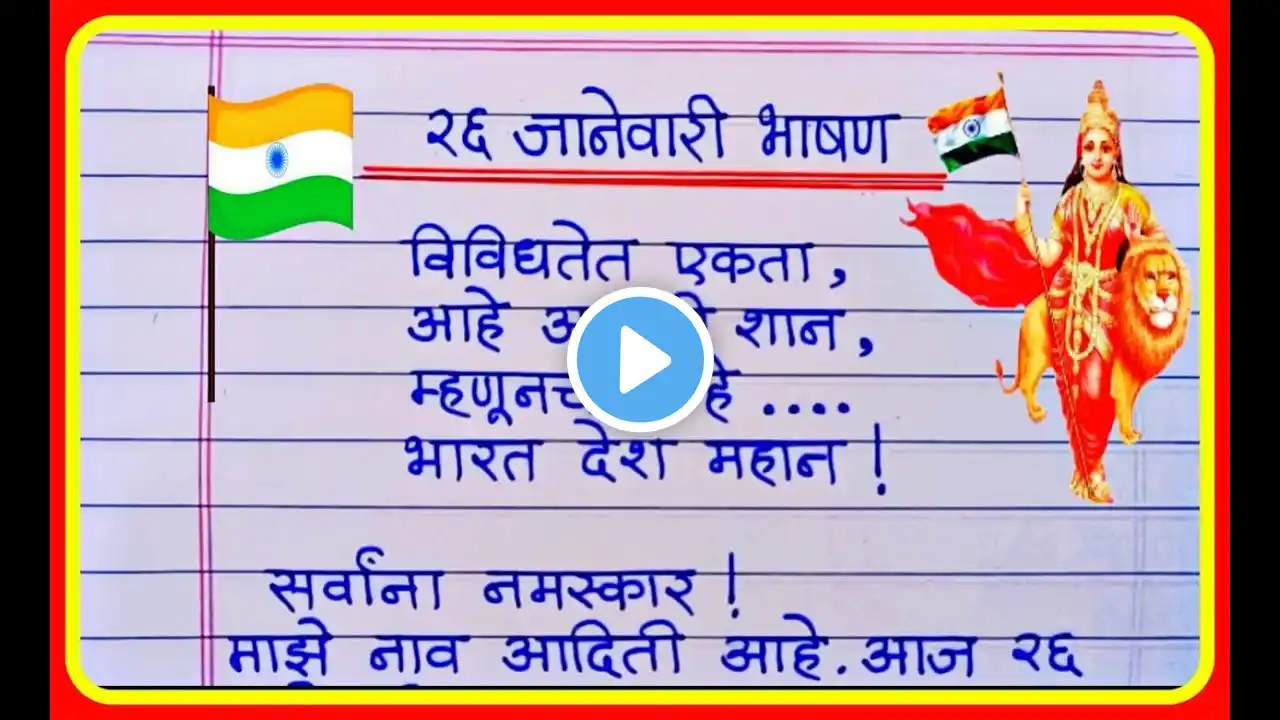 २६ जानेवारी भाषण
विविधतेत एकता,
आहे शान,
....
भारत देश महान !
सर्वांना नमस्कार !
माझे नाव आदिती आहे. आज २६